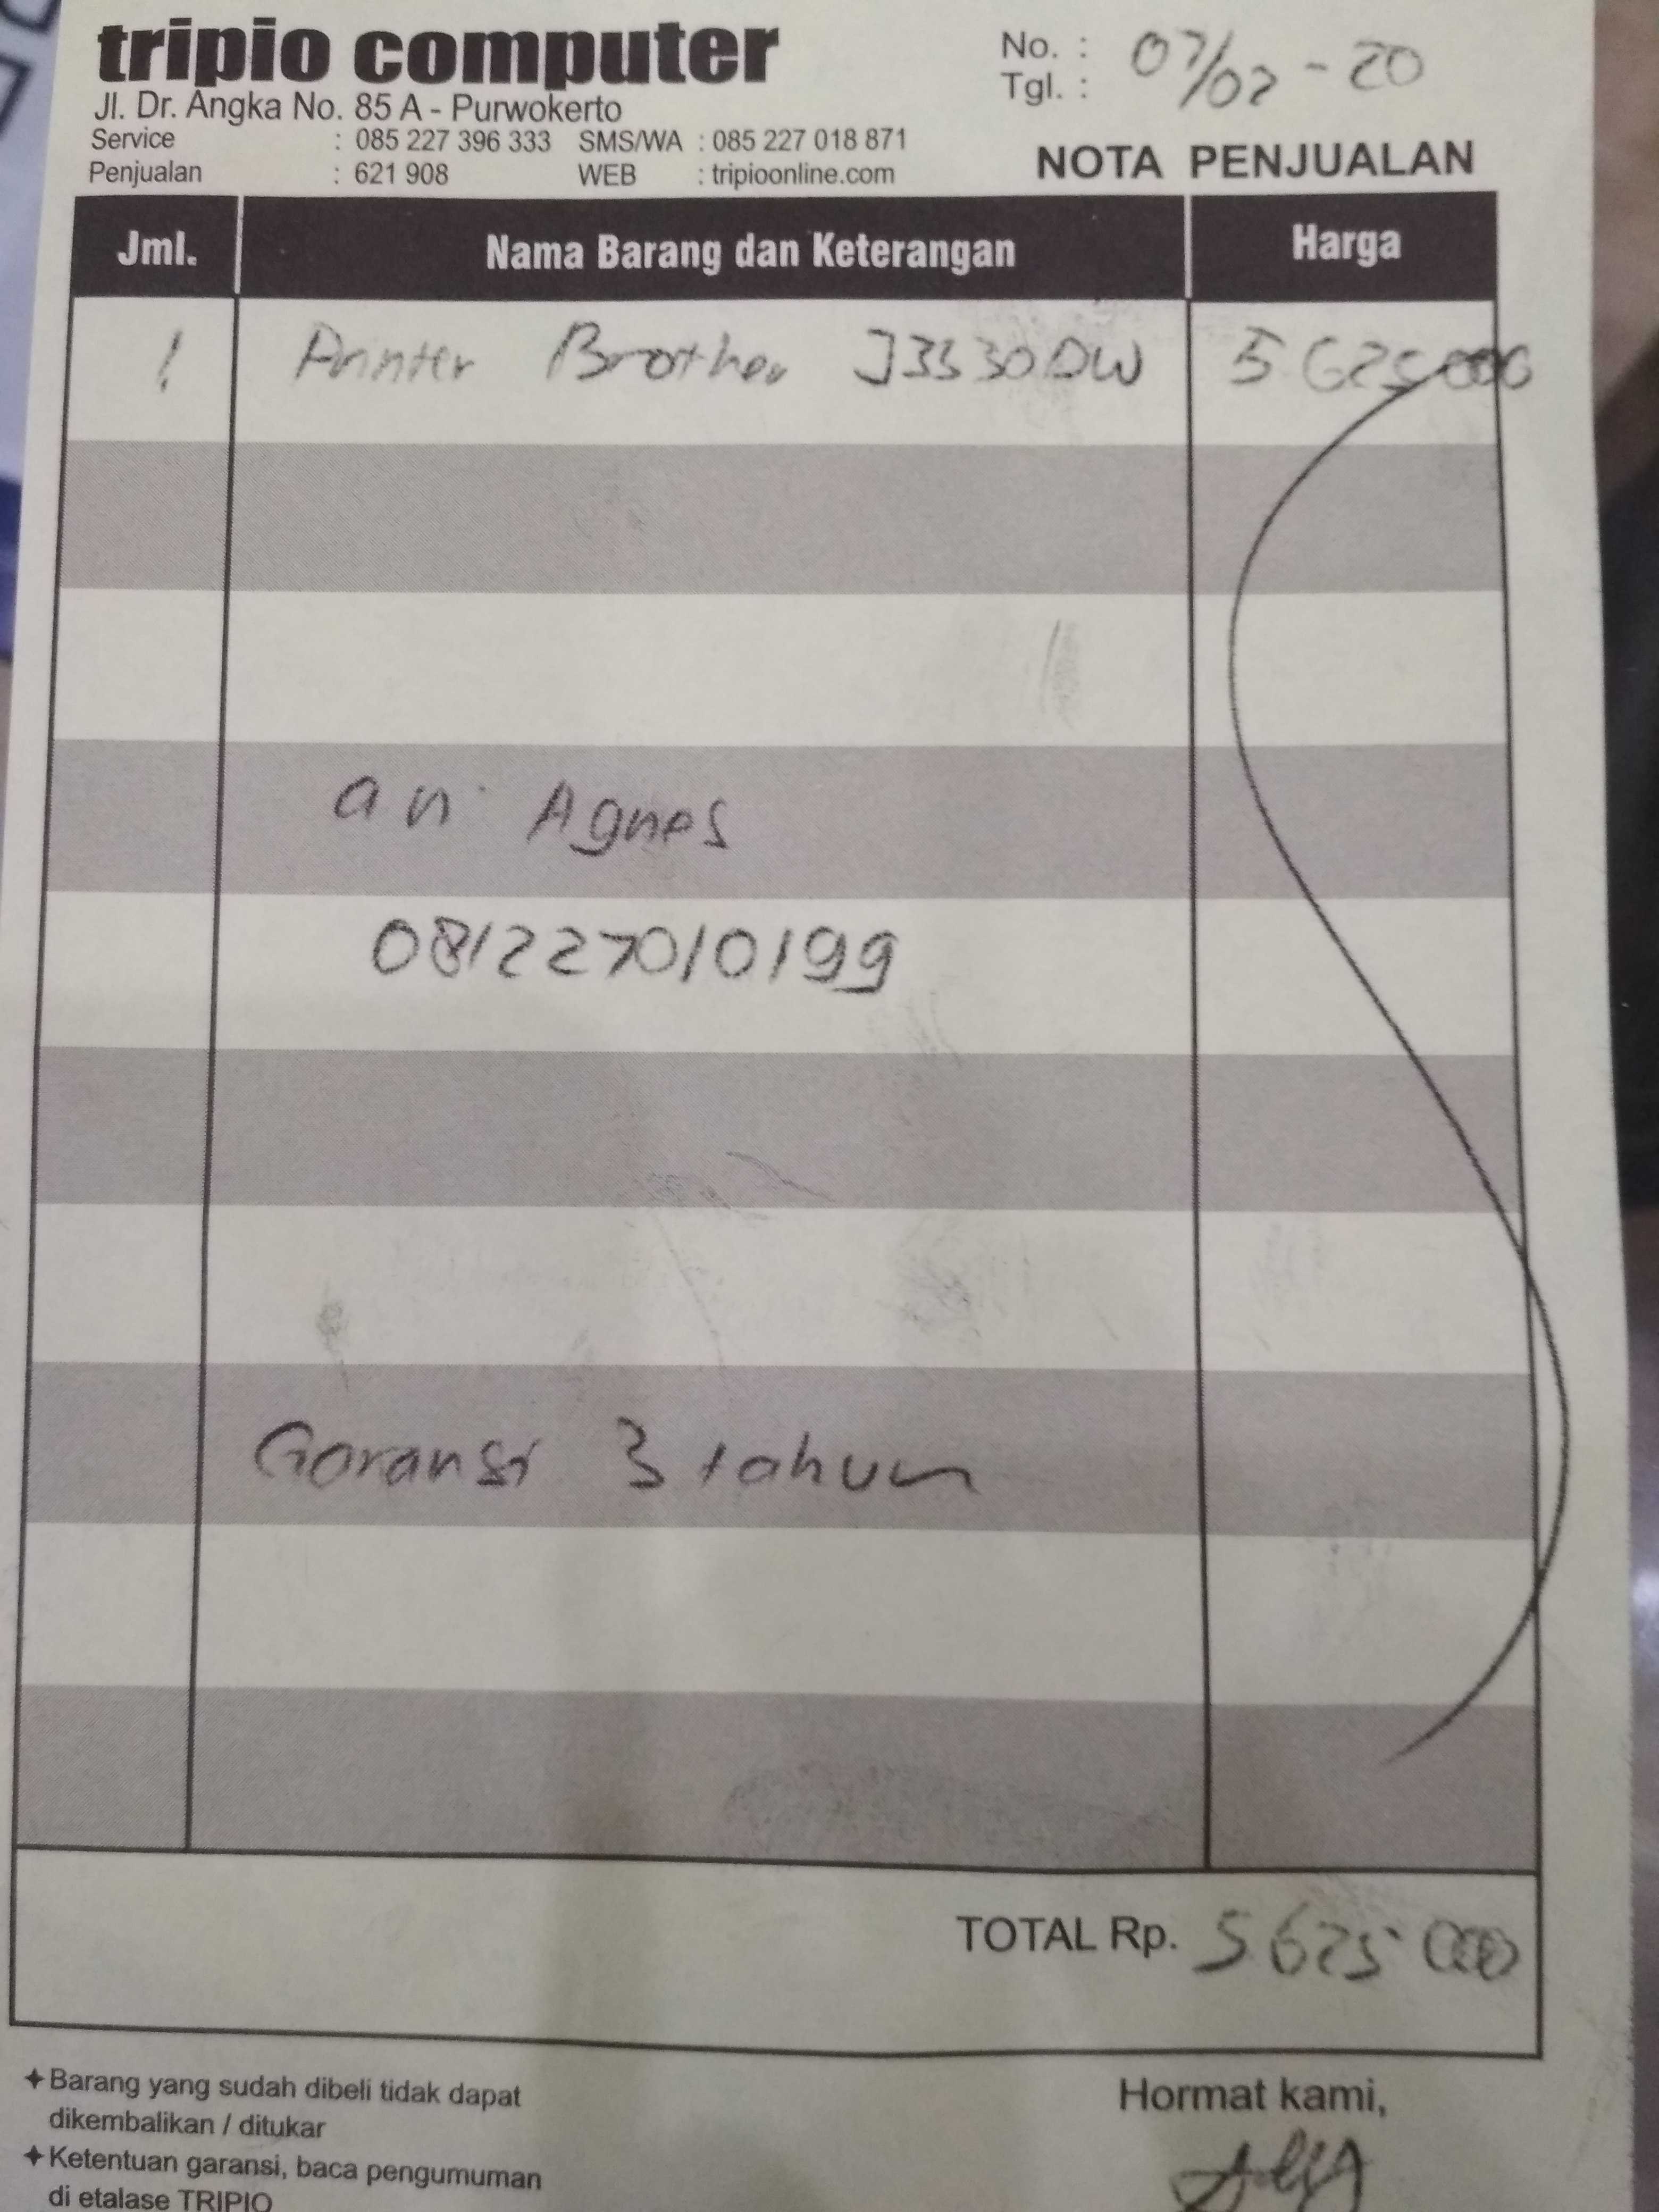 tripio computer
Jl. Dr. Angka No. 85 A - Purwokerto
Service : 085 227 396 333 SMS/WA : 085 227 018 871
Penjualan : 621 908 WEB : tripioonline.com
No. :
Tgl. : 07/02-20
NOTA PENJUALAN
Jml. Nama Barang dan Keterangan Harga
1 Printer Brother J3530DW 5625000
an. Agnes
081227010199
Garansi 3 tahun
TOTAL Rp. 5625000
✦Barang yang sudah dibeli tidak dapat
dikembalikan / ditukar
✦Ketentuan garansi, baca pengumuman
di etalase TRIPIO
Hormat kami,